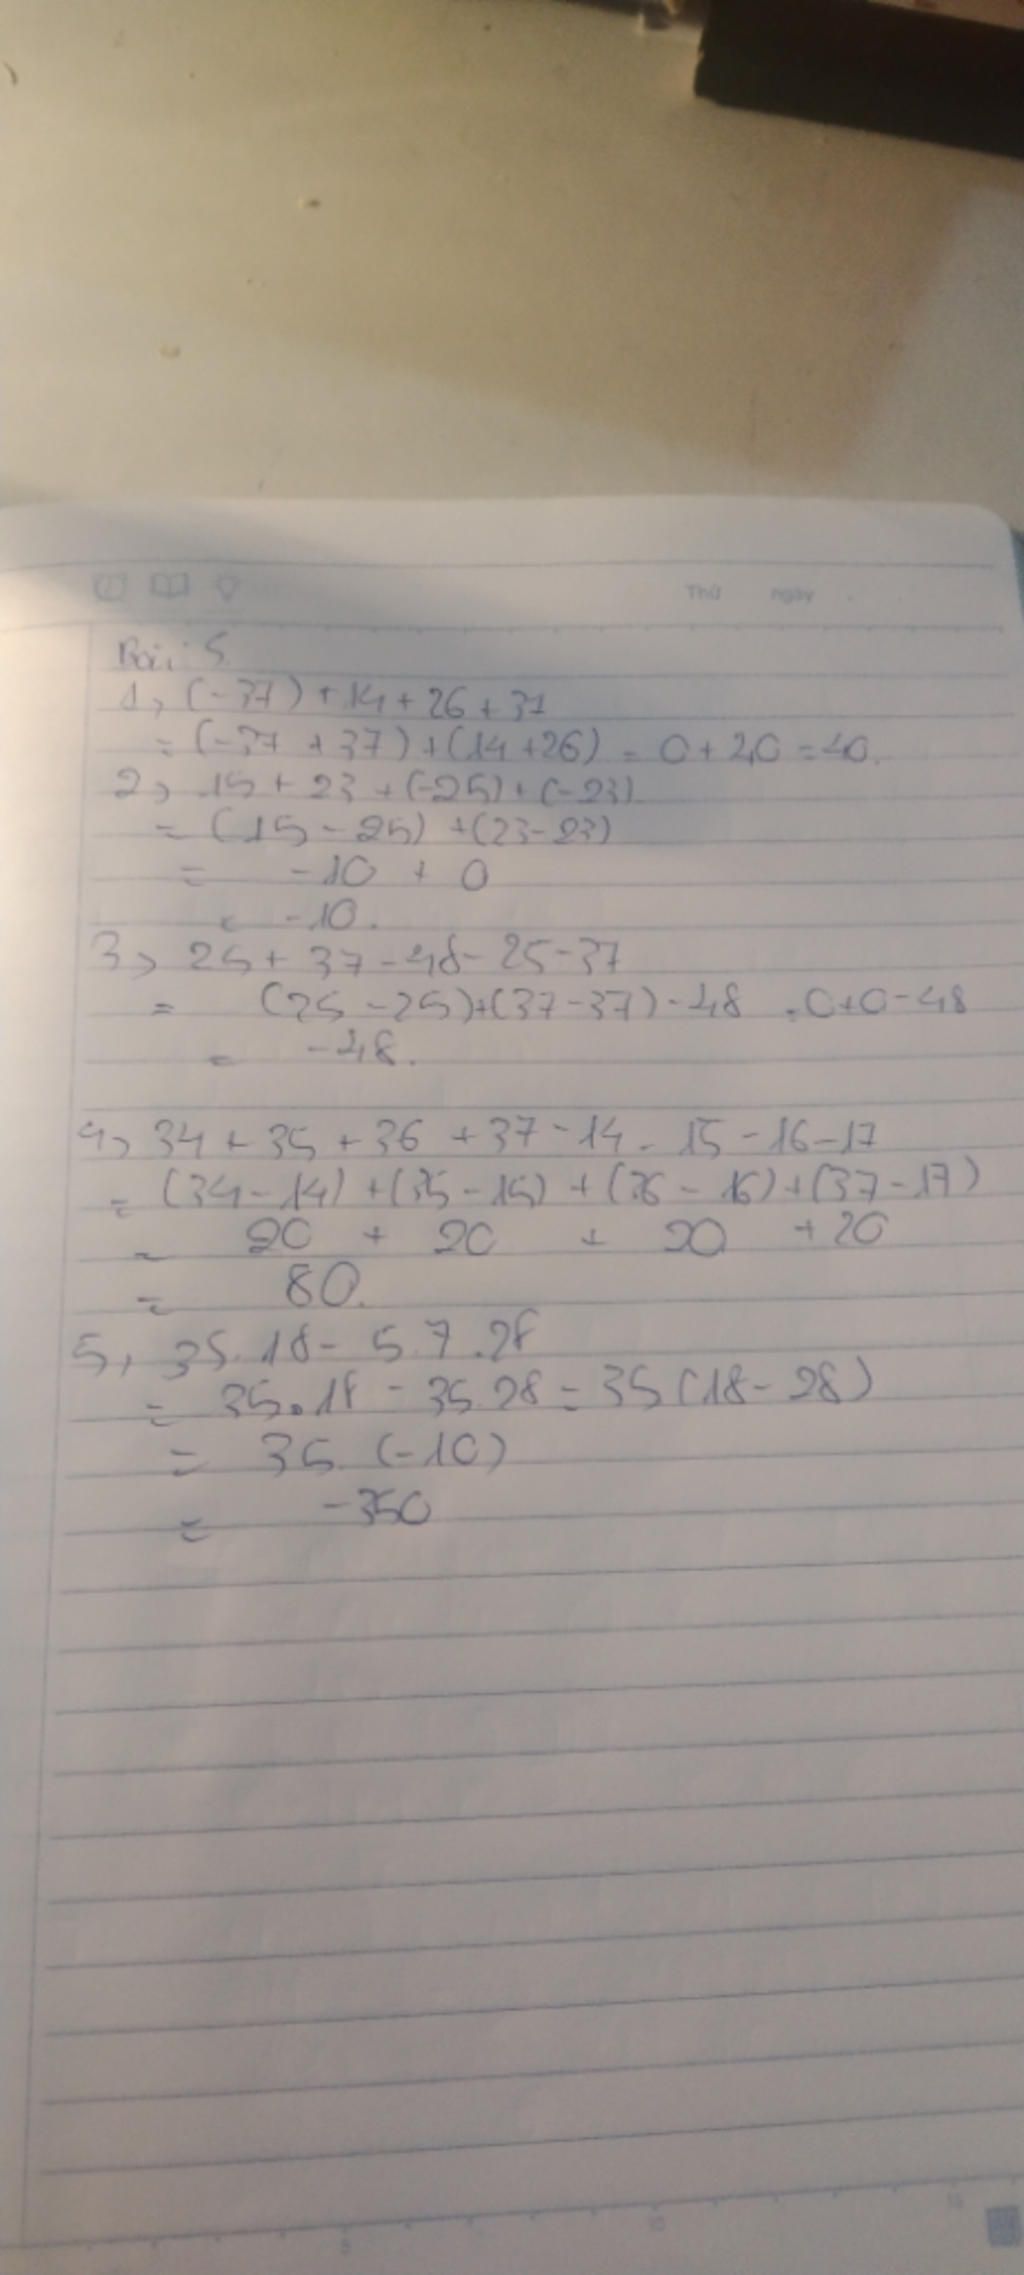 Thứ ngày
Bài: 5.
1, (-37) + 14 + 26 + 37
= (-37 + 37) + (14 + 26) = 0 + 40 = 40.
2, 15 + 23 + (-25) + (-23)
= (15 - 25) + (23 - 23)
= -10 + 0
= -10.
3, 25 + 37 - 48 - 25 - 37
= (25 - 25) + (37 - 37) - 48 = 0 + 0 - 48
= -48.
4, 34 + 35 + 36 + 37 - 14 - 15 - 16 - 17
= (34 - 14) + (35 - 15) + (36 - 16) + (37 - 17)
= 20 + 20 + 20 + 20
= 80.
5, 35.18 - 5.7.28
= 35.18 - 35.28 = 35(18 - 28)
= 35.(-10)
= -350
5 10 15